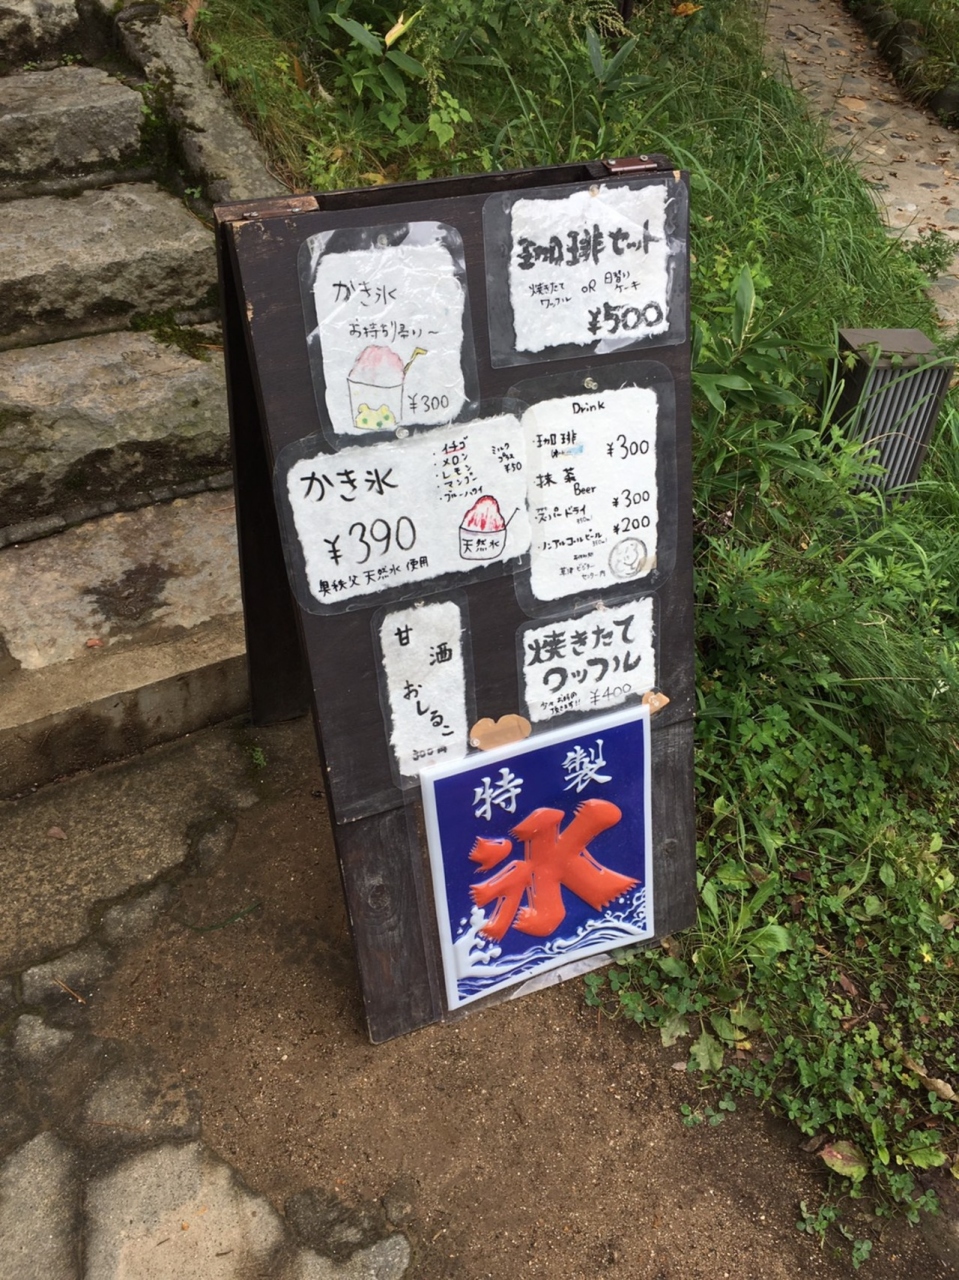 かき氷
お持ち帰り〜
¥300
珈琲セット
焼きたて
ワッフル
OR
日替り
ケーキ
¥500
かき氷
¥390
奥秩父天然水使用
・イチゴ
・メロン
・レモン
・マンゴー
・ブルーハワイ
ミルク
プラス
¥50
天然氷
Drink
・珈琲
¥300
・抹茶
Beer
・スーパードライ
¥300
・ノンアルコールビール
¥200
甘酒
おしるこ
300円
焼きたて
ワッフル
¥400
特製
氷